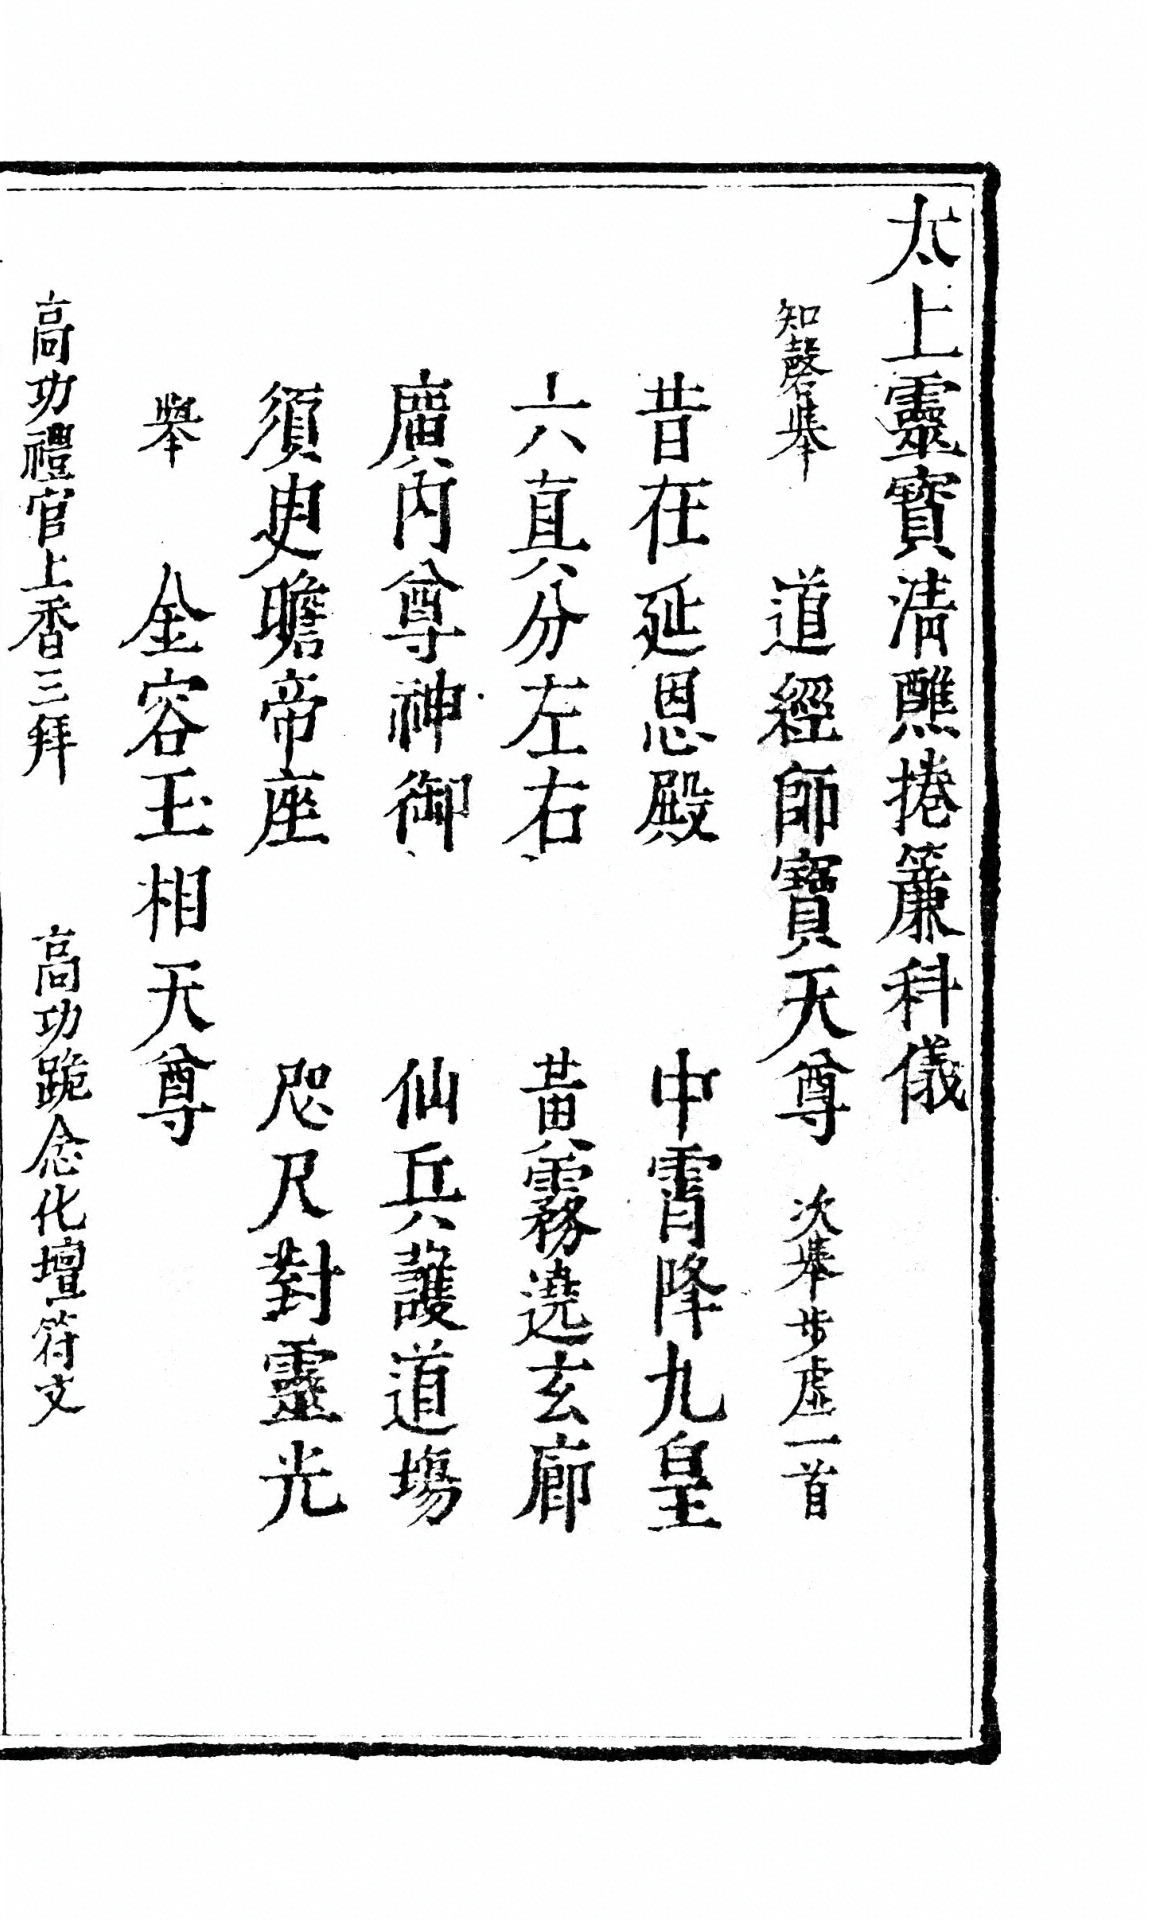 太上靈寶清醮捲簾科儀
知磬舉　道經師寶天尊　次舉步虛一首
昔在延恩殿　中霄降九皇
六真分左右　黃霧遶玄廊
廣內尊神御　仙兵護道場
須臾瞻帝座　咫尺對靈光
舉　金容玉相天尊
高功禮官上香三拜　高功跪念化壇符文